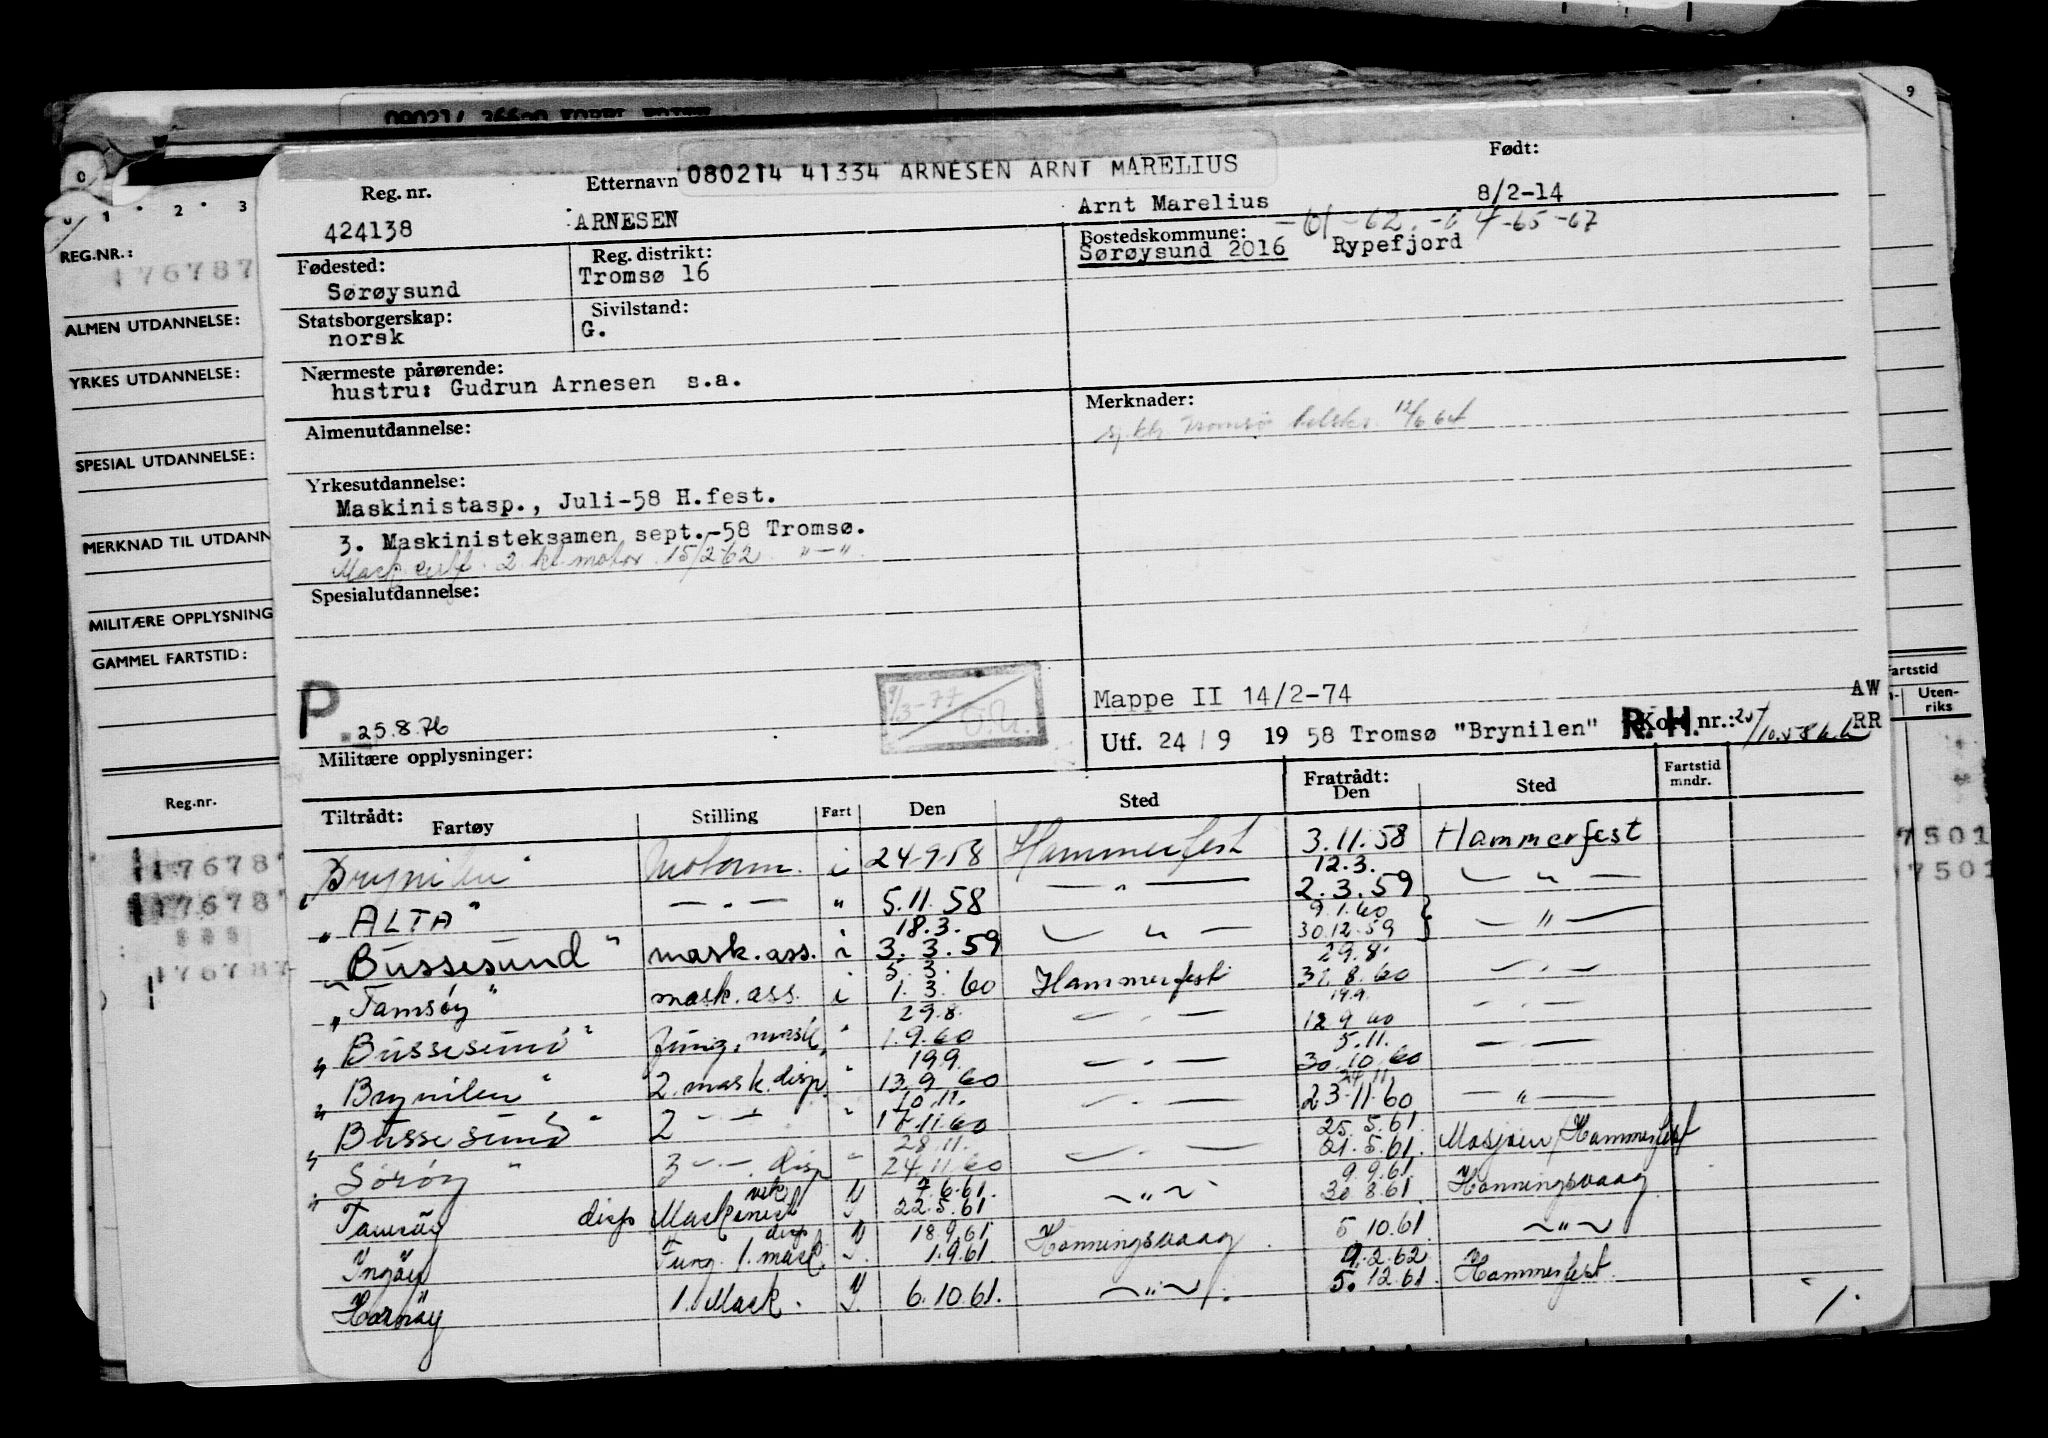 9
080214 41334 ARNESEN ARNT MARELIUS
Reg. nr. Etternavn Født:
424138 ARNESEN Arnt Marelius 8/2-14
-61-62.-64-65-67
Fødested: Reg. distrikt: Bostedskommune:
Sørøysund Tromsø 16 Sørøysund 2016 Rypefjord
Statsborgerskap: Sivilstand:
norsk G.
Nærmeste pårørende:
hustru: Gudrun Arnesen s.a.
Almenutdannelse: Merknader:
Tromsø 12/6 64
Yrkesutdannelse:
Maskinistasp., Juli-58 H.fest.
3. Maskinisteksamen sept.-58 Tromsø.
Mask. cert. 2 kl. motor 15/2-62 "-"
Spesialutdannelse:
P 25.8.76
9/3-77
Mappe II 14/2-74 AW
Utf. 24/9 1958 Tromsø "Brynilen" R.H. Kort nr.: RR
Militære opplysninger:
Tiltrådt: Fartøy Stilling Fart Den Sted Fratrådt: Den Sted Fartstid mndr.
Brynilen Motorm. i 24-9-58 Hammerfest 3.11.58 Hammerfest
12.3.
"ALTA" -"- " 5.11.58 -"- 2.3.59 -"-
18.3. 9.1.60
"Bussesund" mask.ass. i 3.3.59 -"- 30.12.59 -"-
3.3. 29.8.
"Tamsøy" mask.ass. i 1.3.60 Hammerfest 31.8.60 -"-
29.8. 19.9.
"Bussesund" Fung. mask. " 1.9.60 -"- 12 9 60 -"-
19.9. 5.11.
"Brynilen" 2. mask. disp. " 13.9.60 -"- 30.10.60 -"-
10.11. 24.11.
"Bussesund" 2 -"- " 17.11.60 -"- 23.11.60 -"-
28.11. 25.5.61
"Sørøy" 3 -"- disp " 24.11.60 -"- 21.5.61 Mosjøen/Hammerfest
7.6.61. 9.9.61
Tamsøy disp Maskinist vik 22.5.61 -"- 30 8.61 Honningsvaag
18.9.61
Ingøy Fung. 1. mask. disp 1.9.61 Honningsvaag 5.10.61 -"-
9.2.62
Hornøy 1. Mask. 6.10.61. -"- 5.12.61 Hammerfest.
1.
0 1 2 3
REG.NR.:
176787
ALMEN UTDANNELSE:
YRKES UTDANNELSE:
SPESIAL UTDANNELSE:
MERKNAD TIL UTDANN
MILITÆRE OPPLYSNING
GAMMEL FARTSTID:
Reg.nr.
17678
17678
176787
artstid
Uten-
riks
7501
7501